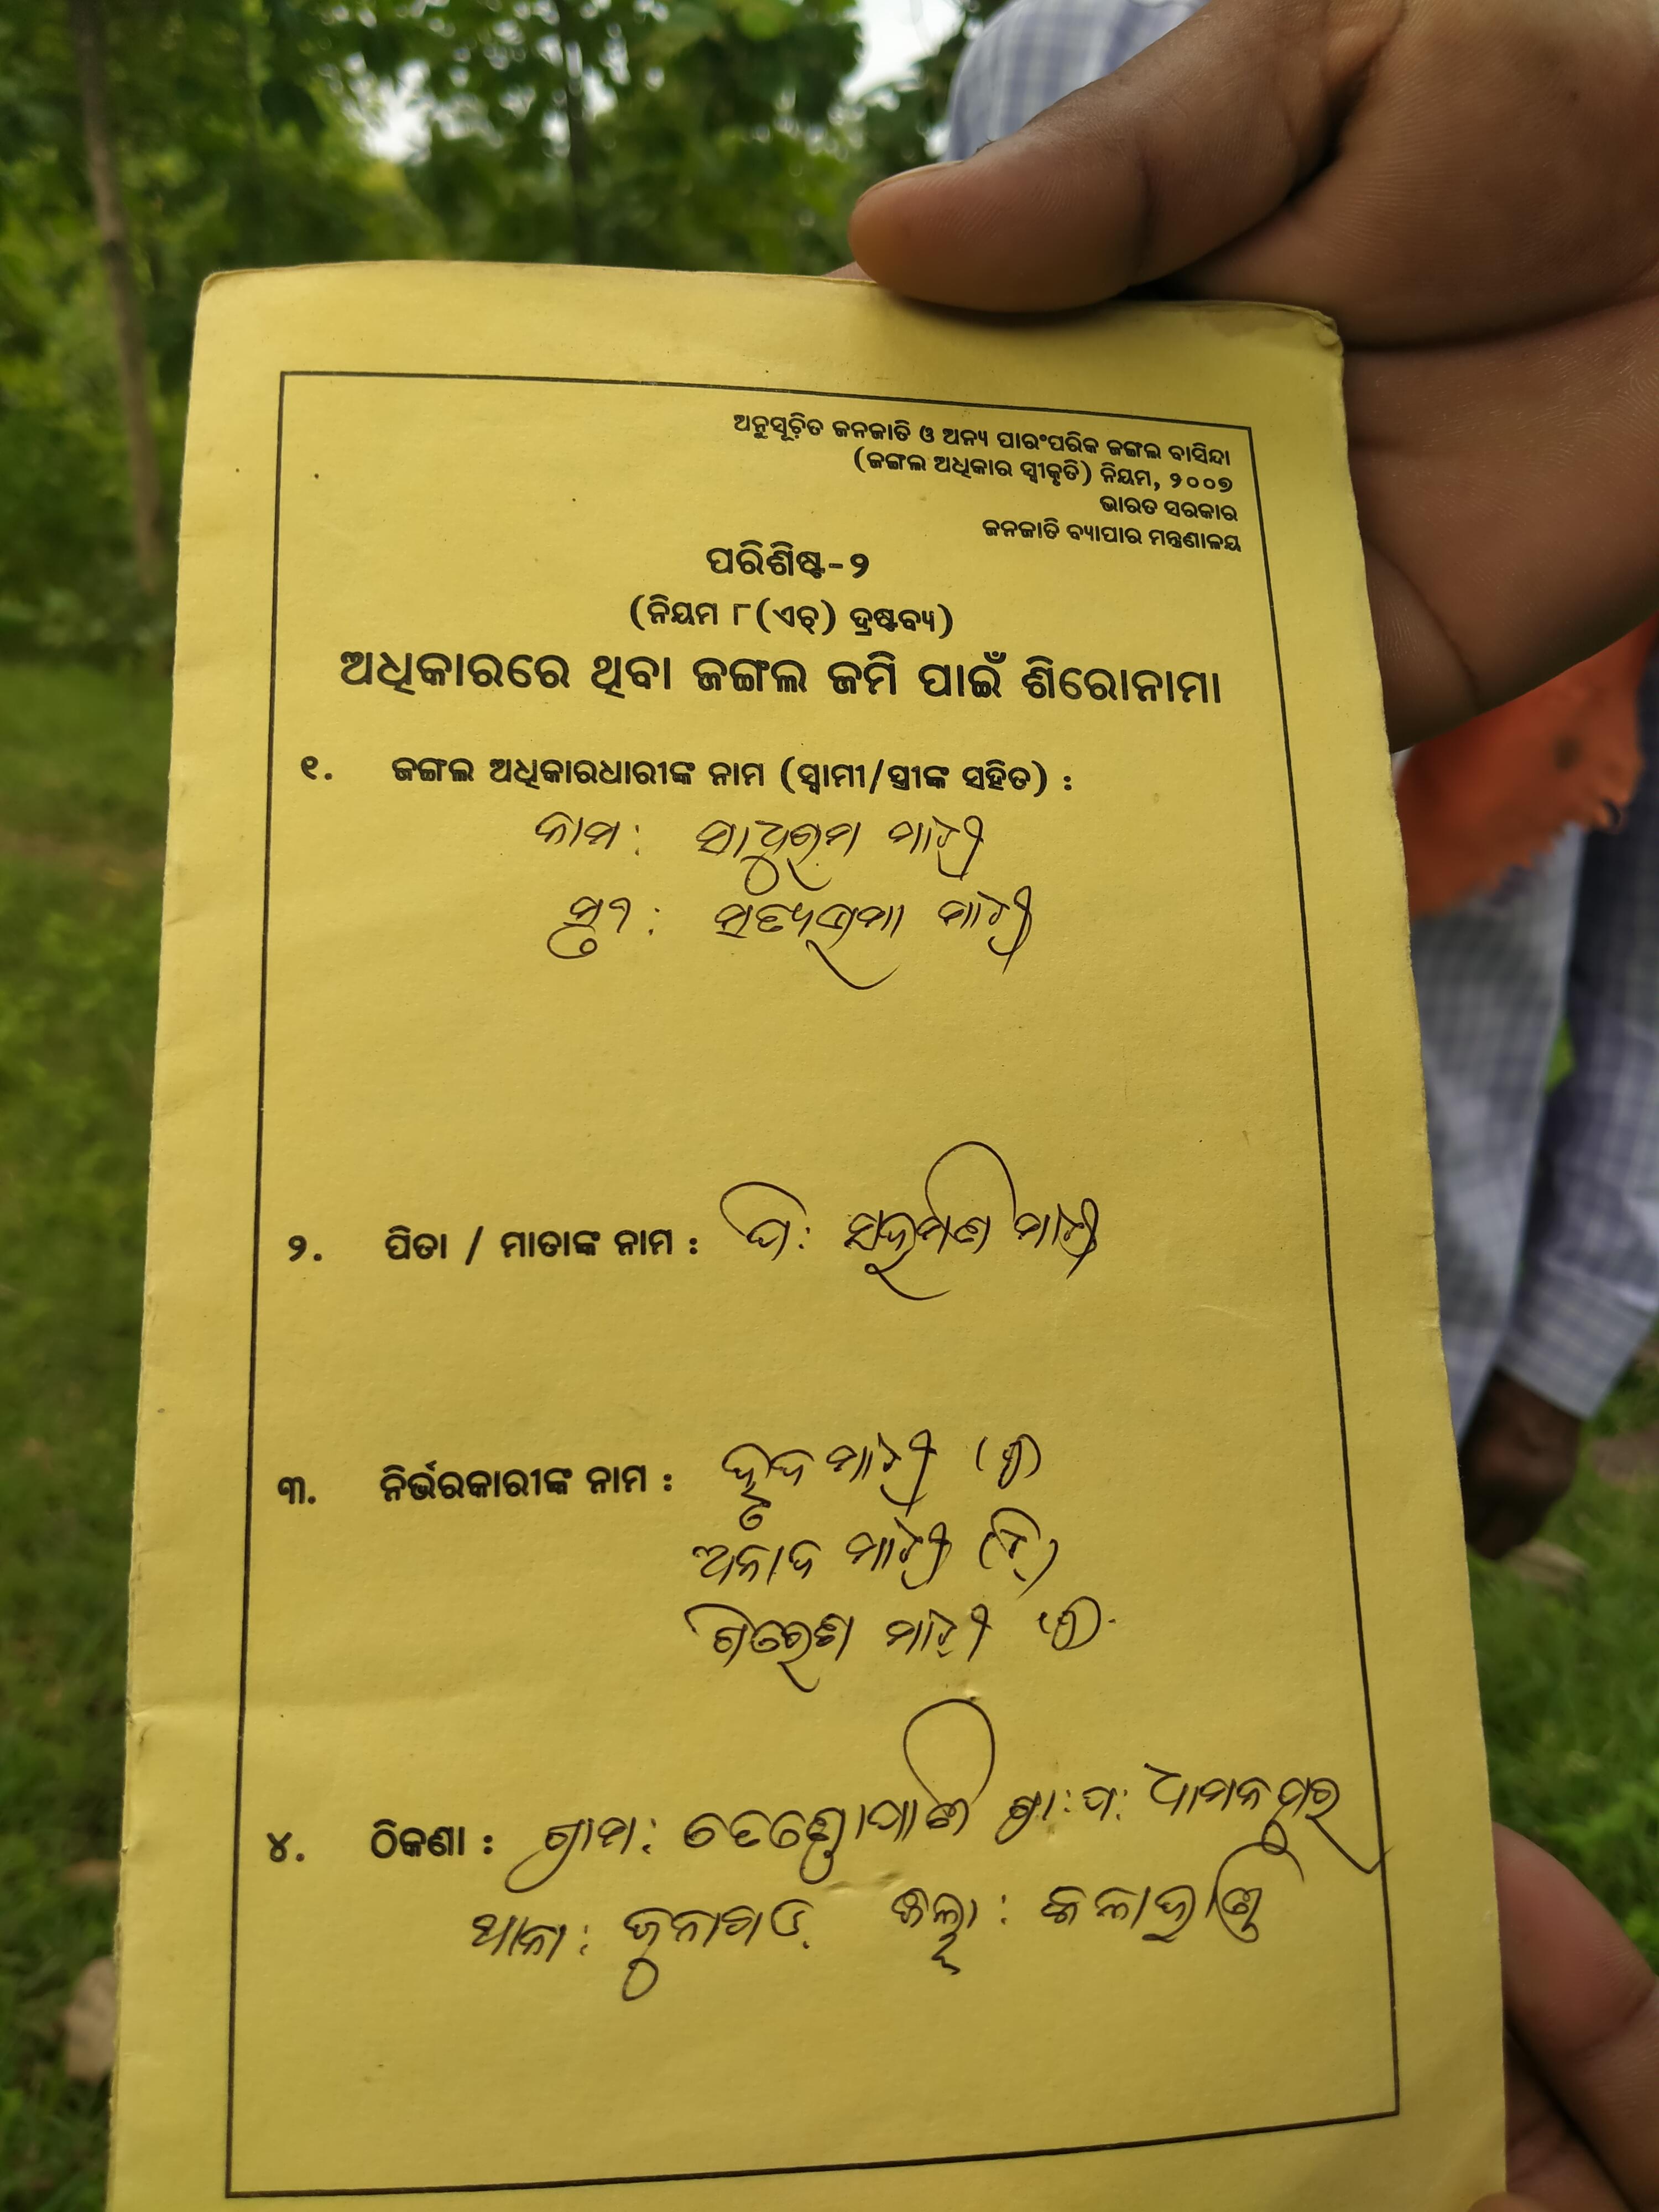 ଅନୁସୂଚିତ ଜନଜାତି ଓ ଅନ୍ୟ ପାରଂପରିକ ଜଙ୍ଗଲ ବାସିନ୍ଦା
(ଜଙ୍ଗଲ ଅଧିକାର ସ୍ୱୀକୃତି) ନିୟମ, ୨୦୦୭
ଭାରତ ସରକାର
ଜନଜାତି ବ୍ୟାପାର ମନ୍ତ୍ରଣାଳୟ
ପରିଶିଷ୍ଟ-୨
(ନିୟମ ୮(ଏଚ୍) ଦ୍ରଷ୍ଟବ୍ୟ)
ଅଧିକାରରେ ଥିବା ଜଙ୍ଗଲ ଜମି ପାଇଁ ଶିରୋନାମା
୧. ଜଙ୍ଗଲ ଅଧିକାରଧାରୀଙ୍କ ନାମ (ସ୍ୱାମୀ/ସ୍ତ୍ରୀଙ୍କ ସହିତ) :
ନାମ: ସାଧୁରାମ ମାଝୀ
ସ୍ତ୍ରୀ: ମାଝୀ
୨. ପିତା / ମାତାଙ୍କ ନାମ : ପି: ମାଝୀ
୩. ନିର୍ଭରକାରୀଙ୍କ ନାମ : ମାଝୀ
ମାଝୀ
ଗିରେଶ ମାଝୀ
୪. ଠିକଣା : ଗ୍ରାମ: ଗ୍ରା: ପ:
ଥାନା: ଜୁନାଗଡ. ଜିଲ୍ଲା: କଳାହାଣ୍ଡି